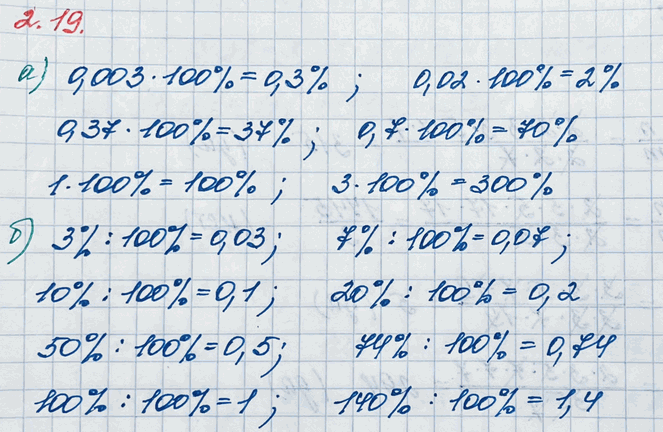 2.19.
а) 0,003 · 100% = 0,3% ; 0,02 · 100% = 2%
0,37 · 100% = 37% ; 0,7 · 100% = 70%
1 · 100% = 100% ; 3 · 100% = 300%
б) 3% : 100% = 0,03 ; 7% : 100% = 0,07 ;
10% : 100% = 0,1 ; 20% : 100% = 0,2
50% : 100% = 0,5 ; 74% : 100% = 0,74
100% : 100% = 1 ; 140% : 100% = 1,4